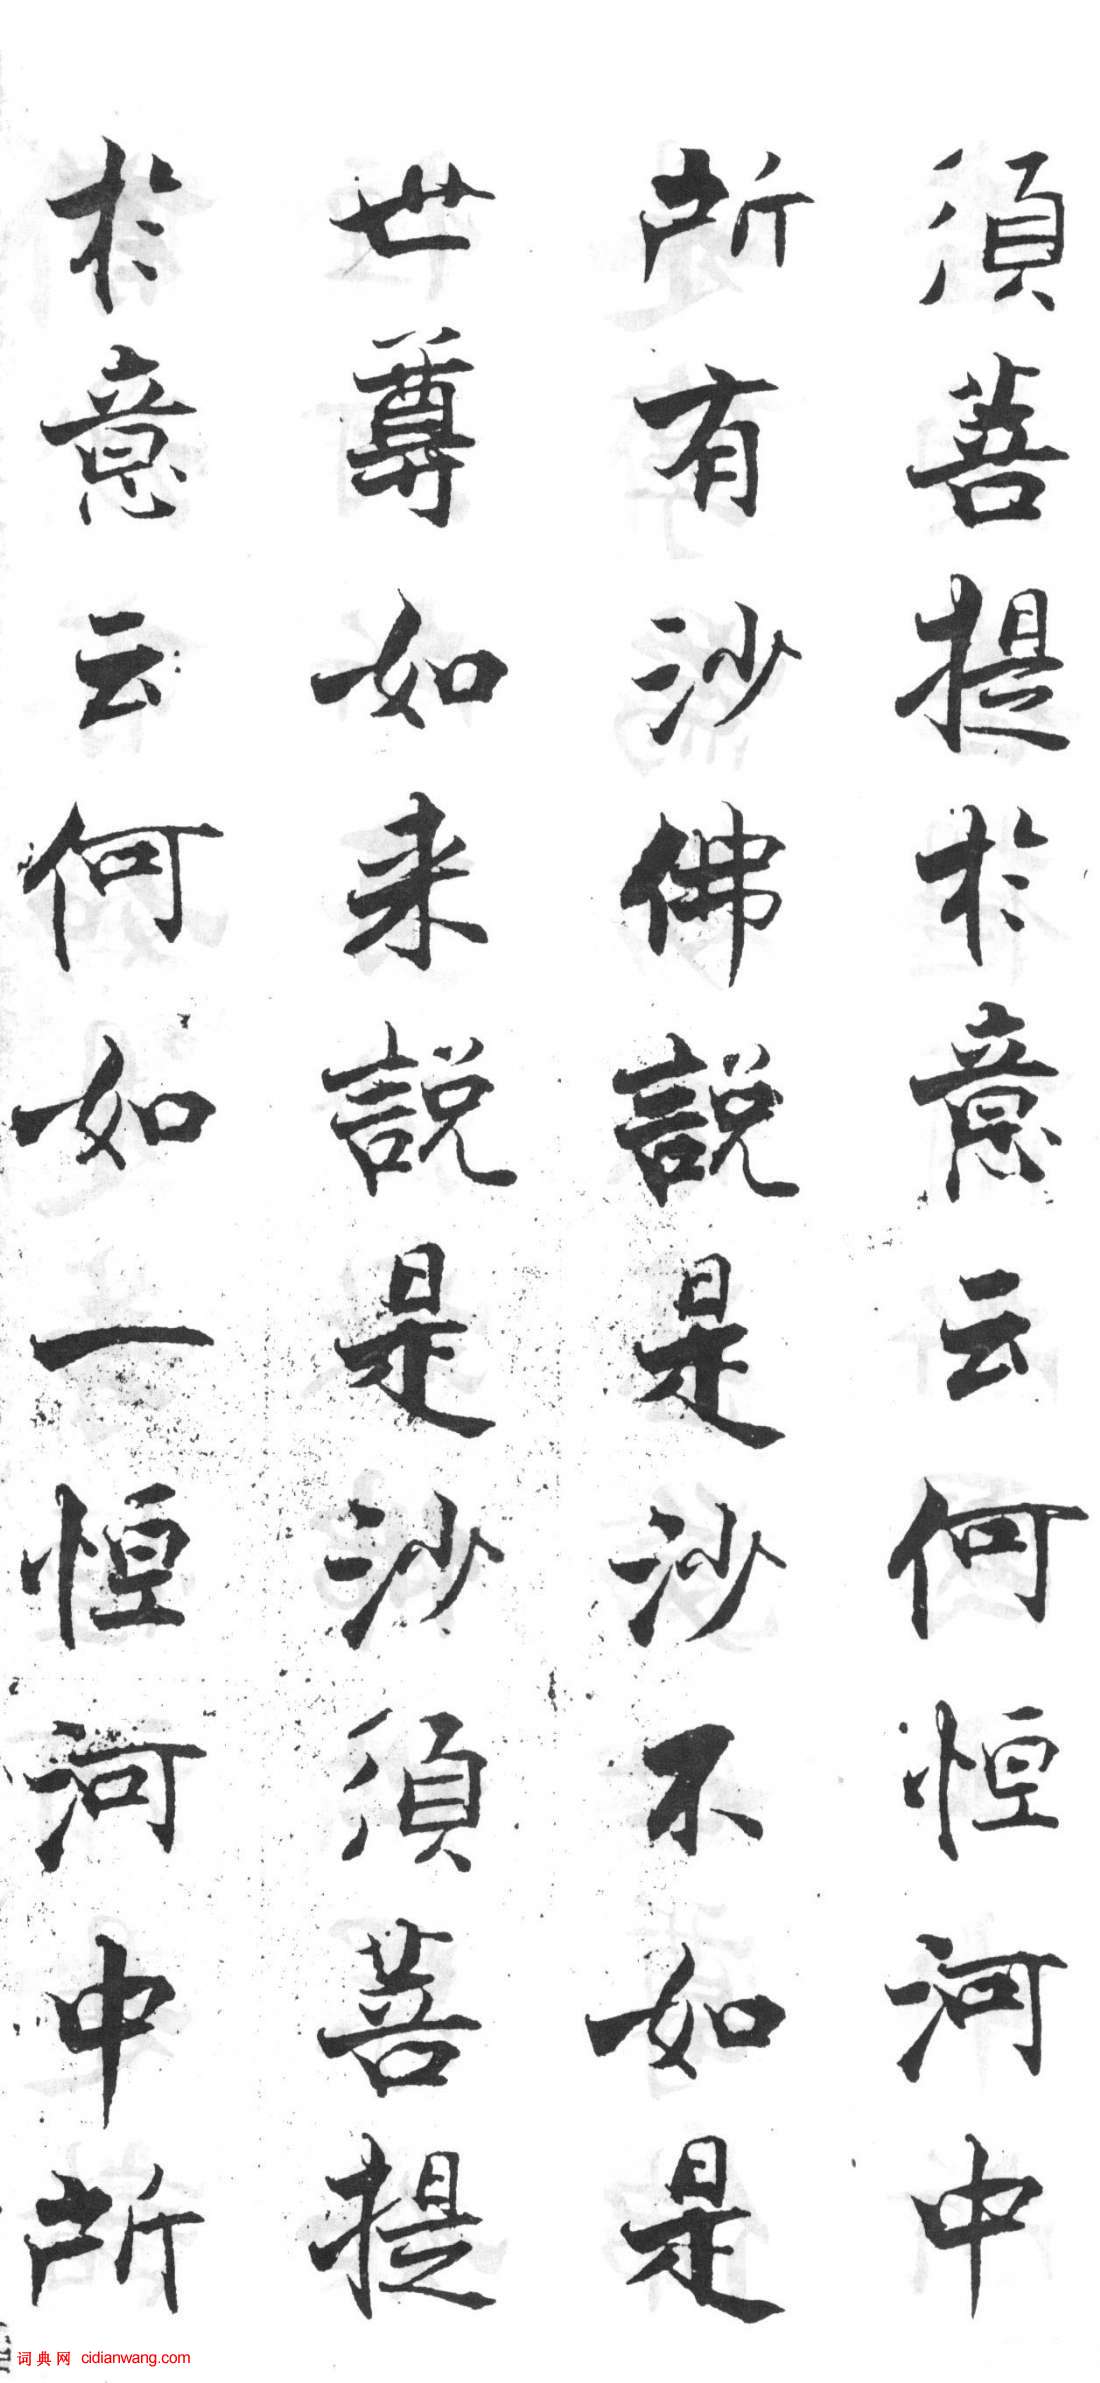 須菩提於意云何恒河中
所有沙佛說是沙不如是
世尊如来說是沙須菩提
於意云何如一恒河中所
词典网 cidianwang.com